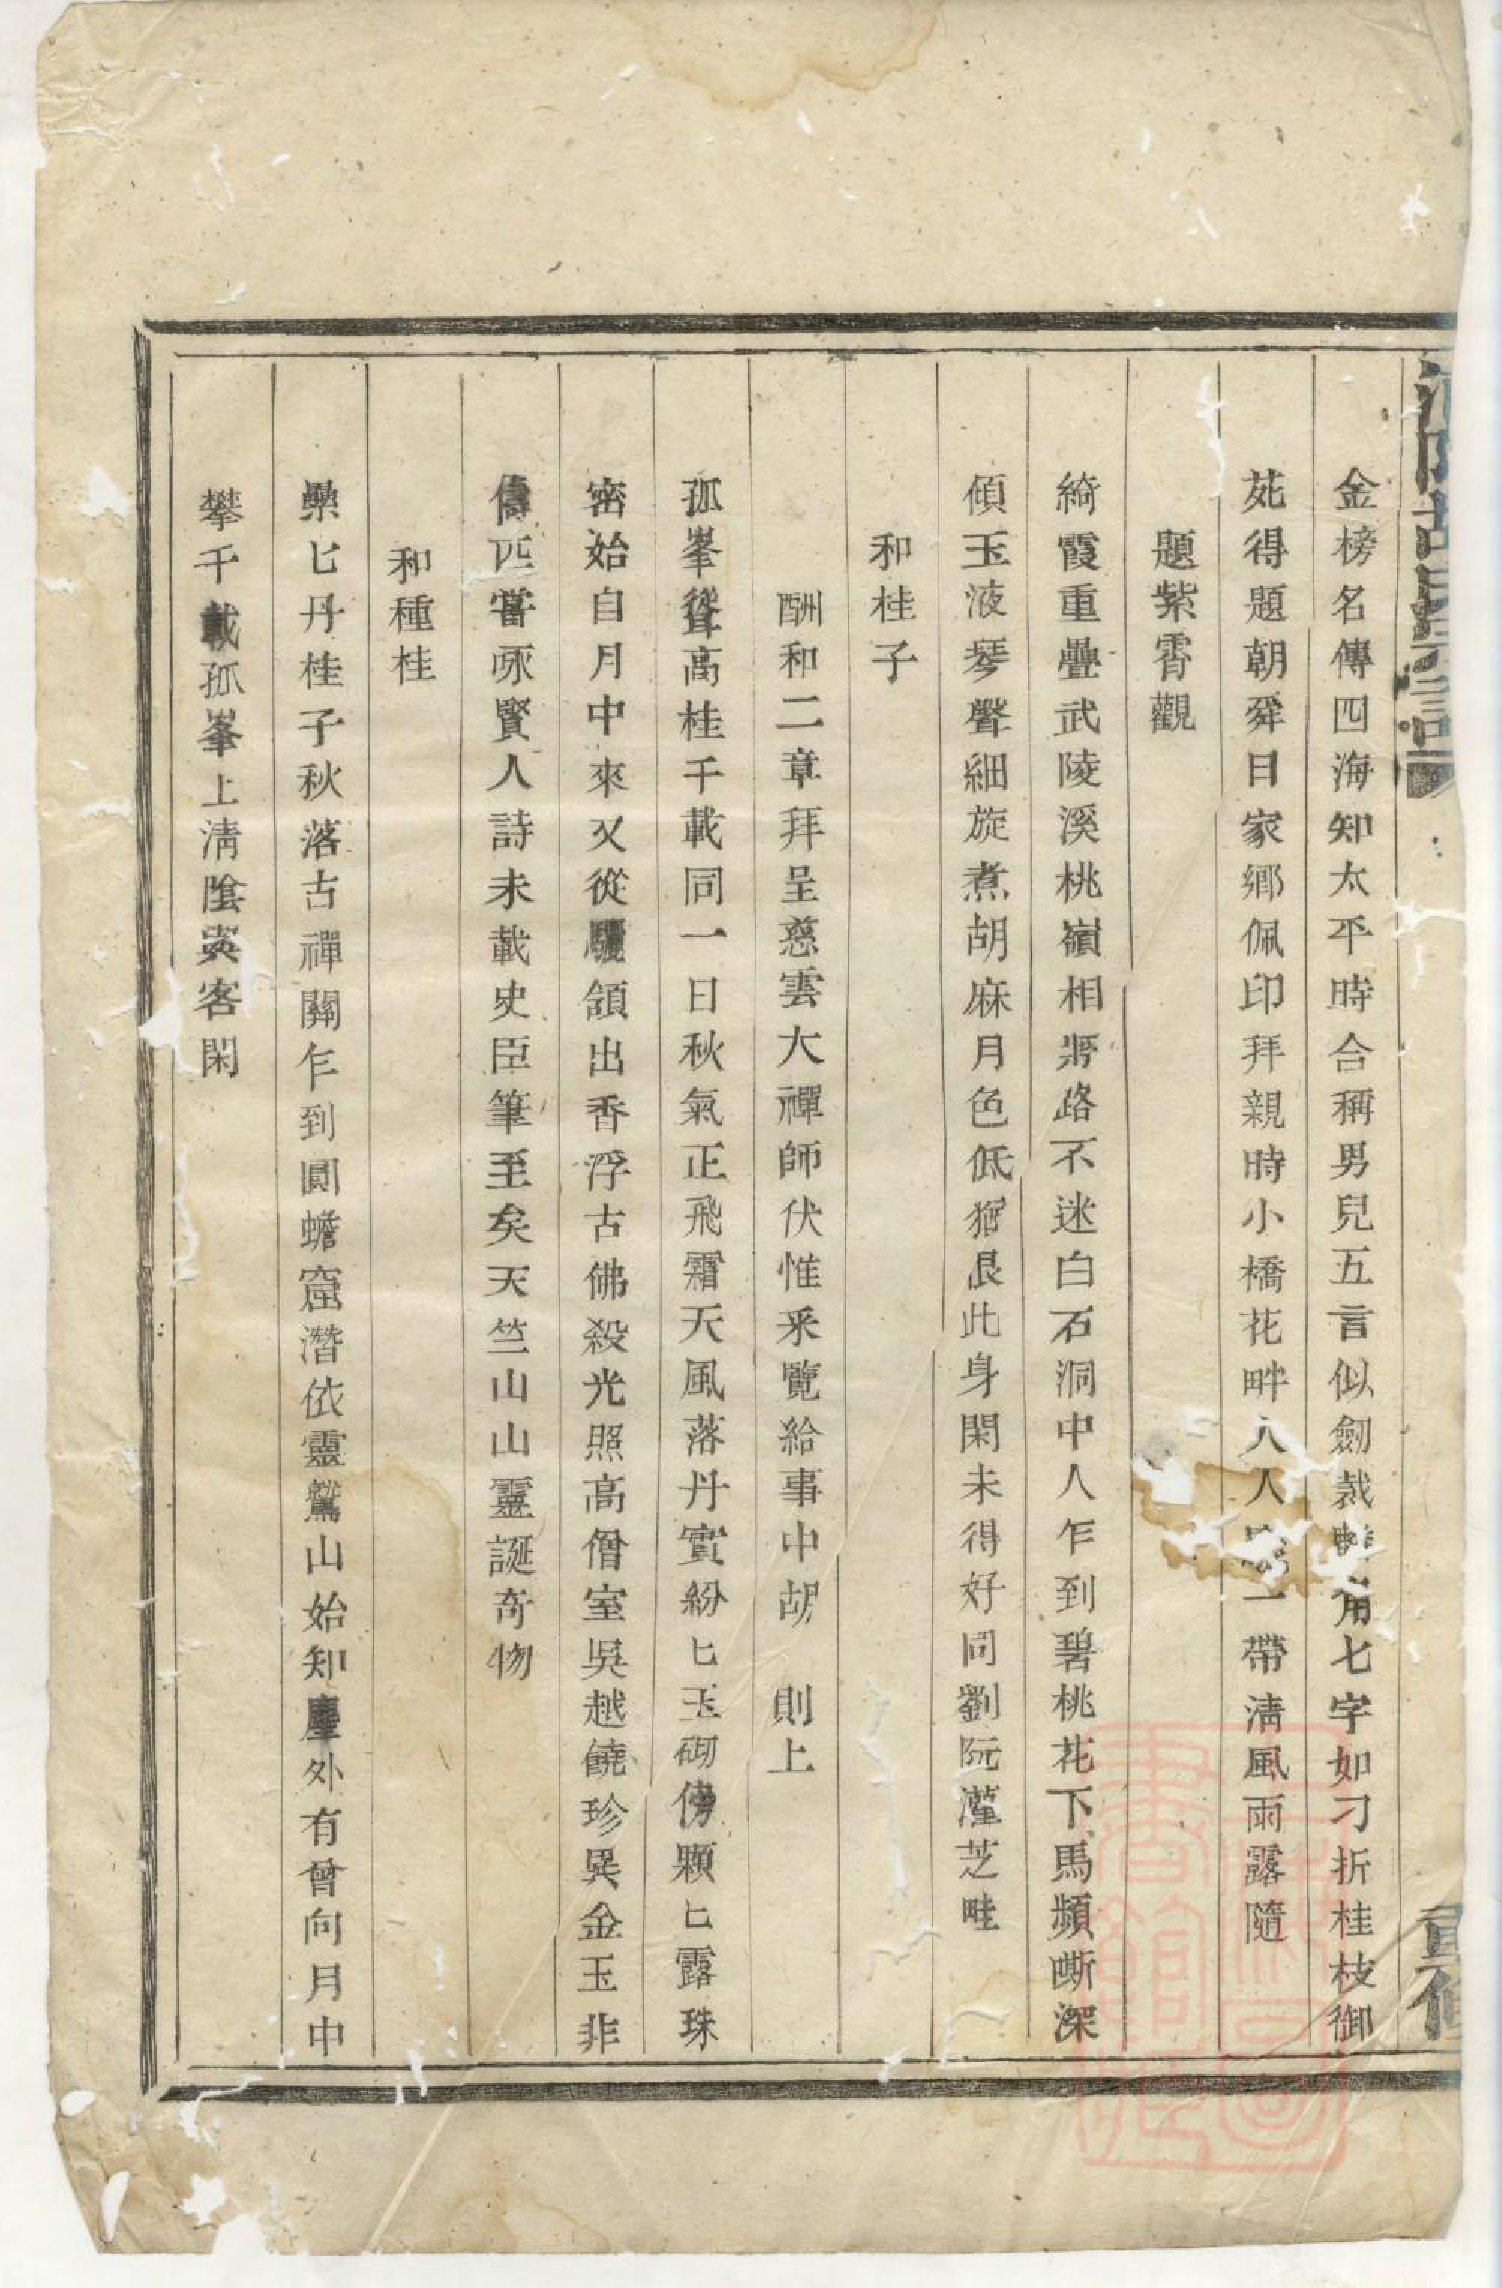 金榜名傳四海知太平時合稱男兒五言似劒裁 角七字如刁折桂枝御
苑得題朝舜日家鄉佩印拜親時小橋花畔人人 一帶淸風雨露隨
題紫霄觀
綺霞重疊武陵溪桃嶺相將路不迷白石洞中人乍到碧桃花下馬頻嘶深
傾玉液琴聲細旋煮胡麻月色低猶恨此身閑未得好同劉阮灌芝畦
和桂子
酬和二章拜呈慈雲大禪師伏惟采覽給事中胡 則上
孤峯聳高桂千載同一日秋氣正飛霜天風落丹實紛匕玉砌傍顆匕露珠
密始自月中來又從驪頷出香浮古佛殺光照高僧室吳越饒珍異金玉非
儔匹嘗啄賢人詩未載史臣筆至矣天竺山山靈誕奇物
和種桂
纍匕丹桂子秋落古禪關乍到圓蟾窟潛依靈鷲山始知塵外有曾向月中
攀千載孤峯上淸陰英客閑